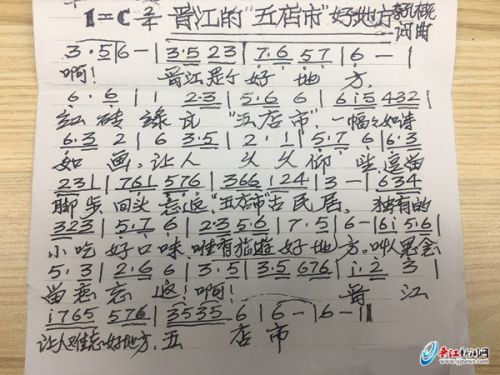 1=C 2/4 晋江的"五店市"好地方 词曲
3·5|6-|3·5 23|7·6 57|6-|
啊！ 晋江是个好地方,
6·6|11 2·3|5·6 6|6i5 432|
红砖绿瓦"五店市",一幅幅如诗
6·3 2|6 3·5|2·1|5·7 6|6·3
如画,让人久久仰
231|761 576|366 124|3-|634
脚步回头忘返,"五店市"古民居,独有的
323|5·7 6|2·3 5·6|7·5|6-|6i 5·6|
小吃好口味,唯有旅游好地方,叫人
5·3|2·6 6|3·5|3·5 676|i·2 3|
忘返!啊! 晋江
i765 576|3535 6|6-|6-||
让人难忘好地方,五店市
晋江新闻网